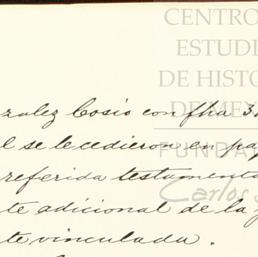 CENTRO
ESTUDI
DE HISTO
DE MEX
FUNDA
Carlos S
nzalez Cosio con fha 3
l se le cedieron en pa
referida testamenta
te adicional de la
te vinculada.